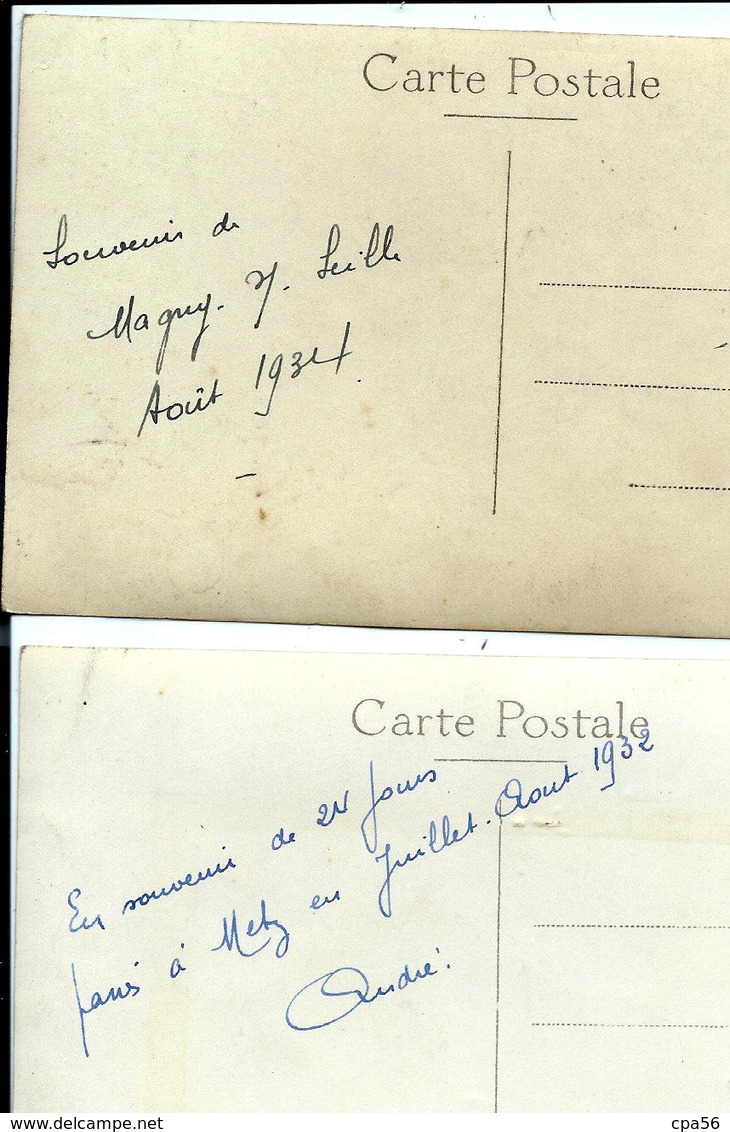 Carte Postale
Souvenir de
Magny. s/. Seille
Août 1934
Carte Postale
En souvenir de 21 jours
passés à Metz en Juillet-Aout 1932
André.
www.delcampe.net
cpa56